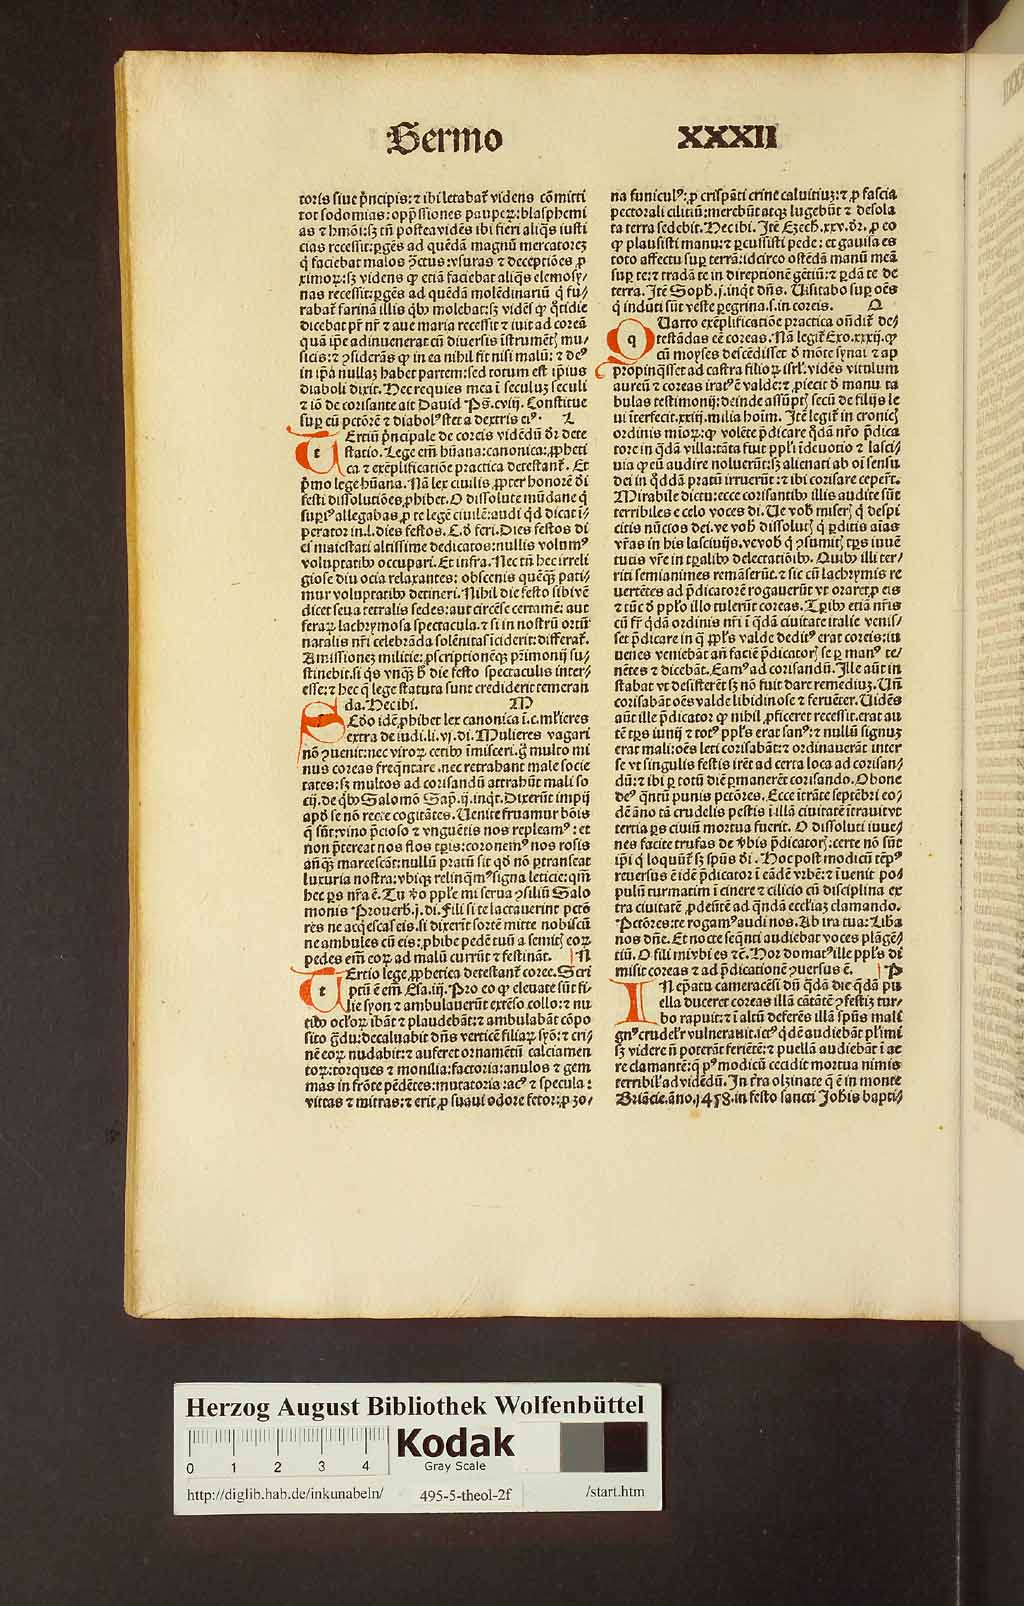 Sermo XXXII
toris siue pͥncipis: ⁊ ibi letabat᷑ videns cōmitti
tot sodomias: opp̄ssiones pauperꝝ: blasphemi
as ⁊ hmōi: sꝫ tn̄ postea vidēs ibi fieri aliq̄s iusti
cias recessit: ꝑgēs ad quēdā magnū mercatorez
q̇ faciebat malos ꝯctus: vsuras ⁊ deceptiōes ꝓ
ximoꝝ: sꝫ videns ꝙ etiā faciebat aliq̄s elemosy⸗
nas recessit: ꝑgēs ad quēdā molēdinariū q̇ fu⸗
rabat᷑ farinā illis qͥbꝰ molebat: sꝫ vidēs ꝙ qͦtidie
dicebat pr̄ nr̄ ⁊ aue maria recessit ⁊ iuit ad coreā
quā ip̄e adinuenerat cū diuersis īstrumētꝭ mu⸗
sicis: ⁊ ꝯsiderās ꝙ in ea nihil fit nisi malū: ⁊ deꝰ
in ip̄a nullaꝫ habet partem: sed totum est ip̄ius
diaboli dixit. Hec requies mea ī seculuꝫ seculi
⁊ iō de corisante ait Dauid Ps̄. cviij. Constitue
suꝑ eū pctōrē ⁊ diabolꝰ stet a dextris eiꝰ. L
t Ertiū pͥncipale de coreis vidēdū dr̄ dete
statio. Lege em̄ hūana: canonica: ꝓpheti
ca ⁊ exēplificatiōe practica detestant᷑. Et
pͥmo lege hūana. Nā lex ciuilis ꝓpter honorē d̄i
festi dissolutiōes ꝓhibet. O dissolute mūdane q̇
supͥꝰ allegabas ꝓ te legē ciuilē: audi qͥd dicat ī⸗
perator in. l. dies festos. C. d̄ feri. Dies festos di
ei maiestati altissime dedicatos: nullis volumꝰ
voluptatibꝰ occupari. Et infra. Nec tn̄ hec irreli
giose diu ocia relaxantes: obscenis quēqꝫ pati⸗
mur voluptatibꝰ detineri. Nihil die festo sibi vē
dicet seua tetralis sedes: aut circēse certamē: aut
feraꝝ lachrymosa spectacula. ⁊ si in nostrū ortū
natalis nr̄i celebrāda solēnitas īciderit: differat᷑.
Amissionez militie: ꝓscriptionēqꝫ pr̄imonij su⸗
stinebit. si q̇s vnqꝫ h̄ die festo spectaculis inter⸗
esse: ⁊ hec q̄ lege statuta sunt crediderit temeran
da. Hec ibi. M
S Ecūdo idē ꝓhibet lex canonica ī. c. ml̓ieres
extra de iudi. li. vj. di. Mulieres vagari
nō ꝯuenit: nec viroꝝ cetibꝰ īmisceri. g̊ multo mi
nus coreas freqn̄tare. nec retrahant male socie
tates: sꝫ multos ad corisandū attrahūt mali so
cij. de qͥbꝰ Salomō Sap̄. ij. inqͥt. Dixerūt impij
apd̄ se nō recte cogitātes. Uenite fruamur bōis
q̄ sūt: vino p̄cioso ⁊ vnguētis nos repleamꝰ: et
non p̄tereat nos flos tꝑis: coronemꝰ nos rosis
anͣqꝫ marcescāt: nullū pratū sit qd̄ nō ꝑtranseat
luxuria nostra: vbiqꝫ relinqͣmꝰ signa leticie: qm̄
hec ꝑs nr̄a ē. Tu v̊o pp̄le mi serua ꝯsiliū Salo
monis Prouerb̄. j. di. Fili si te lactauerint pctō
res ne acqͥescas eis. si dixerīt sortē mitte nobiscū
ne ambules cū eis: ꝓhibe pedē tuū a semitꝭ eoꝝ.
pedes em̄ eoꝝ ad malū currūt ⁊ festināt. N
t Ertio lege ꝓphetica detestant᷑ coree. Scri
ptū ē em̄ Esa. iij. Pro eo ꝙ eleuate sūt fi⸗
lie syon ⁊ ambulauerūt extēso collo: ⁊ nu
tibꝰ ocl̓oꝝ ibāt ⁊ plaudebāt: ⁊ ambulabāt cōpo
sito gͣdu: decaluabit dn̄s verticē filiaꝝ syō: ⁊ cri⸗
nē eoꝝ nudabit: ⁊ auferet ornamētū calciamen
toꝝ: torques ⁊ monilia: factoria: anulos ⁊ gem
mas in frōte pēdētes: mutatoria: acꝰ ⁊ specula:
vittas ⁊ mitras: ⁊ erit ꝓ suaui odore fetor: ꝓ zo⸗
na funiculꝰ: ꝓ crispāti crine caluitiuꝫ: ⁊ ꝓ fascia
pectorali ciliciū: merebūt atqꝫ lugebūt ⁊ desola
ta terra sedebit. Hec ibi. Itē Ezech̄. xxv. dr̄. ꝓ eo
ꝙ plausisti manu: ⁊ ꝑcussisti pede: et gauisa es
toto affectu suꝑ terrā: idcirco ostēdā manū meā
suꝑ te: ⁊ tradā te in direptionē gētiū: ⁊ ꝑdā te de
terra. Itē Soph̄. j. inqͥt dn̄s. Uisitabo suꝑ oēs
q̇ induti sūt veste ꝑegrina. s. in coreis. O
q Uarto exēplificatiōe practica on̄dit᷑ de⸗
testādas eē coreas. Nā legit᷑ Exo. xxxij. ꝙ
cū moyses descēdisset d̄ mōte synai ⁊ ap
propinqͣsset ad castra filioꝝ isrl̓. vidēs vitulum
aureū ⁊ coreas iratꝰ ē valde: ⁊ ꝓiecit d̄ manu ta
bulas testimonij: deinde assūptꝭ secū de filijs le
ui īterfecit. xxiij. milia hoīm. Itē legit᷑ in cronicꝭ
ordinis mīoꝝ: ꝙ volēte p̄dicare qͦdā nr̄o p̄dica
tore in qͣdā villa: tāta fuit pp̄li īdeuotio ⁊ lasci⸗
uia ꝙ eū audire noluerūt: sꝫ alienati ab oī sensu
dei in qͦddā pratū irruerūt: ⁊ ibi corisare ceꝑt᷑.
Mirabile dictu: ecce corisantibꝰ illis audite sūt
terribiles e celo voces di. Ue vob̄ miserꝭ q̇ despi
citis nūcios dei. ve vob̄ dissolutꝭ q̇ ꝑditis aīas
vr̄as in his lasciuijs. ve vob̄ q̇ ꝯsumitꝭ tꝑs iuuē
tutis vr̄e in tꝑalibꝰ delectatiōibꝰ. Quibꝰ illi ter⸗
riti semianimes remāserūt. ⁊ sic cū lachrymis re
uertētes ad p̄dicatorē rogauerūt vt oraret ꝓ eis
⁊ tūc d̄ pp̄lo illo tulerūt coreas. Tꝑibꝰ etiā nr̄is
cū fr̄ qͥdā ordinis nr̄i ī qͣdā ciuitate italie venis⸗
set p̄dicare in q̄ ppl̓s valde deditꝰ erat coreis: iu
uenes veniebāt an̄ faciē p̄dicatorꝭ se ꝑ manꝰ te⸗
nētes ⁊ dicebāt. Eamꝰ ad corisandū. Ille aūt in
stabat vt desisterēt sꝫ nō fuit dare remediuꝫ. Un̄
corisabāt oēs valde libidinose ⁊ feruēter. Uidēs
aūt ille p̄dicator ꝙ nihil ꝓficeret recessit. erat au
tē tꝑs iunij ⁊ totꝰ ppl̓s erat sanꝰ: ⁊ nullū signuꝫ
erat mali: oēs leti corisabāt: ⁊ ordinauerāt inter
se vt singulis festis irēt ad certa loca ad corisan⸗
dū: ⁊ ibi ꝑ totū diē ꝑmanerēt corisando. O bone
deꝰ qͣntū punis pctōres. Ecce ītrāte septēbri eo⸗
dē āno tā crudelis pestis ī illā ciuitatē ītrauit vt
tertia ꝑs ciuiū mortua fuerit. O dissoluti iuue⸗
nes facite trufas de v̓bis p̄dicatorꝭ: certe nō sūt
ip̄i q̇ loquūt᷑ sꝫ spūs d̄i. Hoc post modicū tēpꝰ
reuersus ē idē p̄dicator ī eādē vrbē: ⁊ īuenit po⸗
pulū turmatim ī cinere ⁊ cilicio cū disciplina ex
tra ciuitatē ꝓdeūtē ad qͣndā ecclīaꝫ clamando.
Pctōres: te rogamꝰ audi nos. Ab ira tua: Liba
nos dn̄e. Et nocte seqn̄ti audiebat voces plāgē⸗
tiū. O fili mi vbi es ⁊c̄. Hoc domatꝰ ille ppl̓s di
misit coreas ⁊ ad p̄dicationē ꝯuersus ē. P
I N ep̄atu cameracēsi dn̄ qͣdā die qͣdā pu
ella duceret coreas illā cātātē ꝯfestiꝫ tur⸗
bo rapuit: ⁊ ī altū deferēs illā spūs mali
gnꝰ crudelr̄ vulnerauit. ictꝰ qͥdē audiebāt pl̓imi
sꝫ videre n̄ poterāt feriētē: ⁊ puellā audiebāt ī ae
re clamantē: q̄ pꝰ modicū cecidit mortua nimis
terribil̓ ad vidēdū. In tr̄a olzinate q̄ ē in monte
Briācie. āno. 1458. in festo sancti Joh̄is bapti⸗
Herzog August Bibliothek Wolfenbüttel
0 1 2 3 4
Kodak
Gray Scale
http://diglib.hab.de/inkunabeln/ 495-5-theol-2f /start.htm